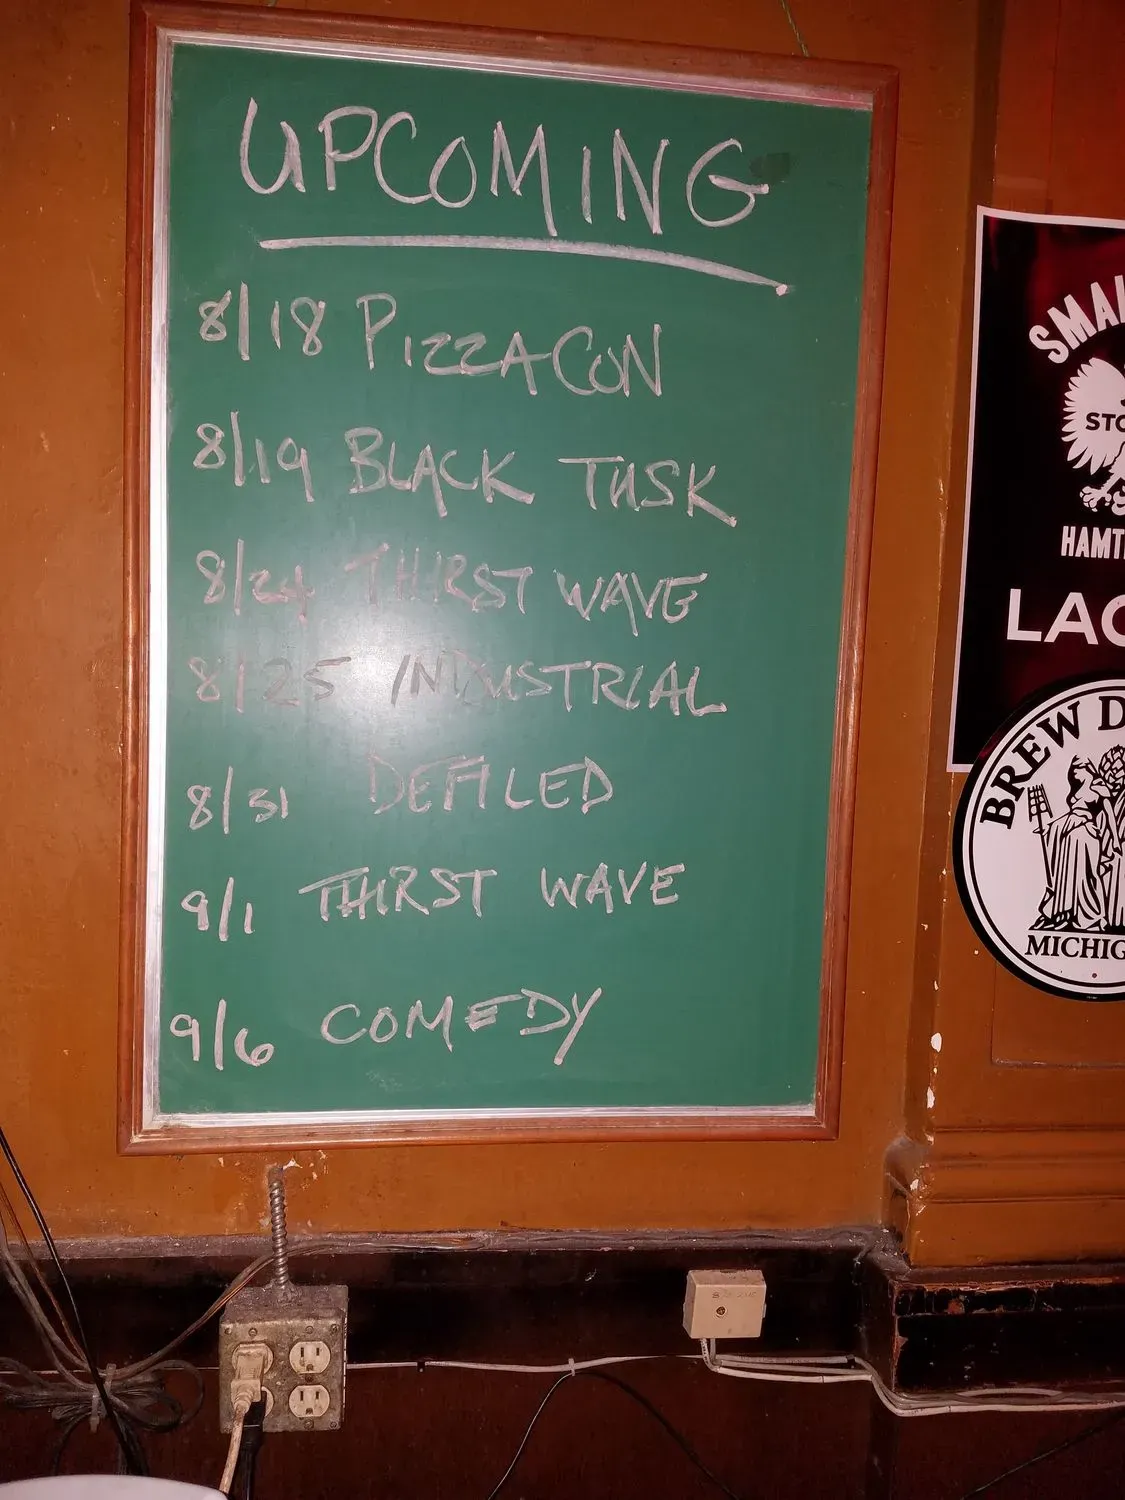 UPCOMING
8/18 PIZZA CON
8/19 BLACK TUSK
8/24 THIRST WAVE
8/25 INDUSTRIAL
8/31 DEFILED
9/1 THIRST WAVE
9/6 COMEDY
SMAL
STO
HAMT
LAG
BREW D
MICHIG